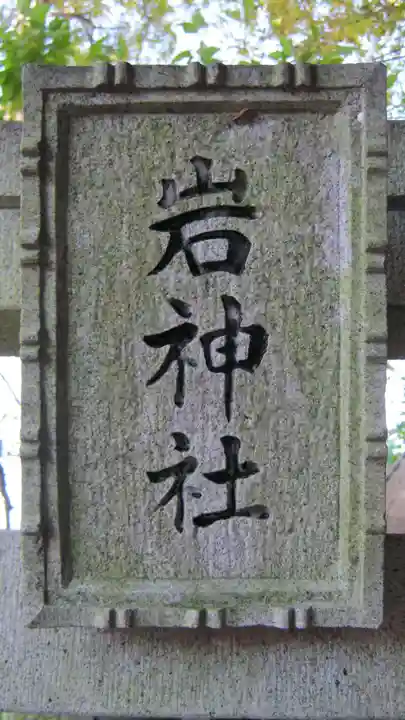 岩神社